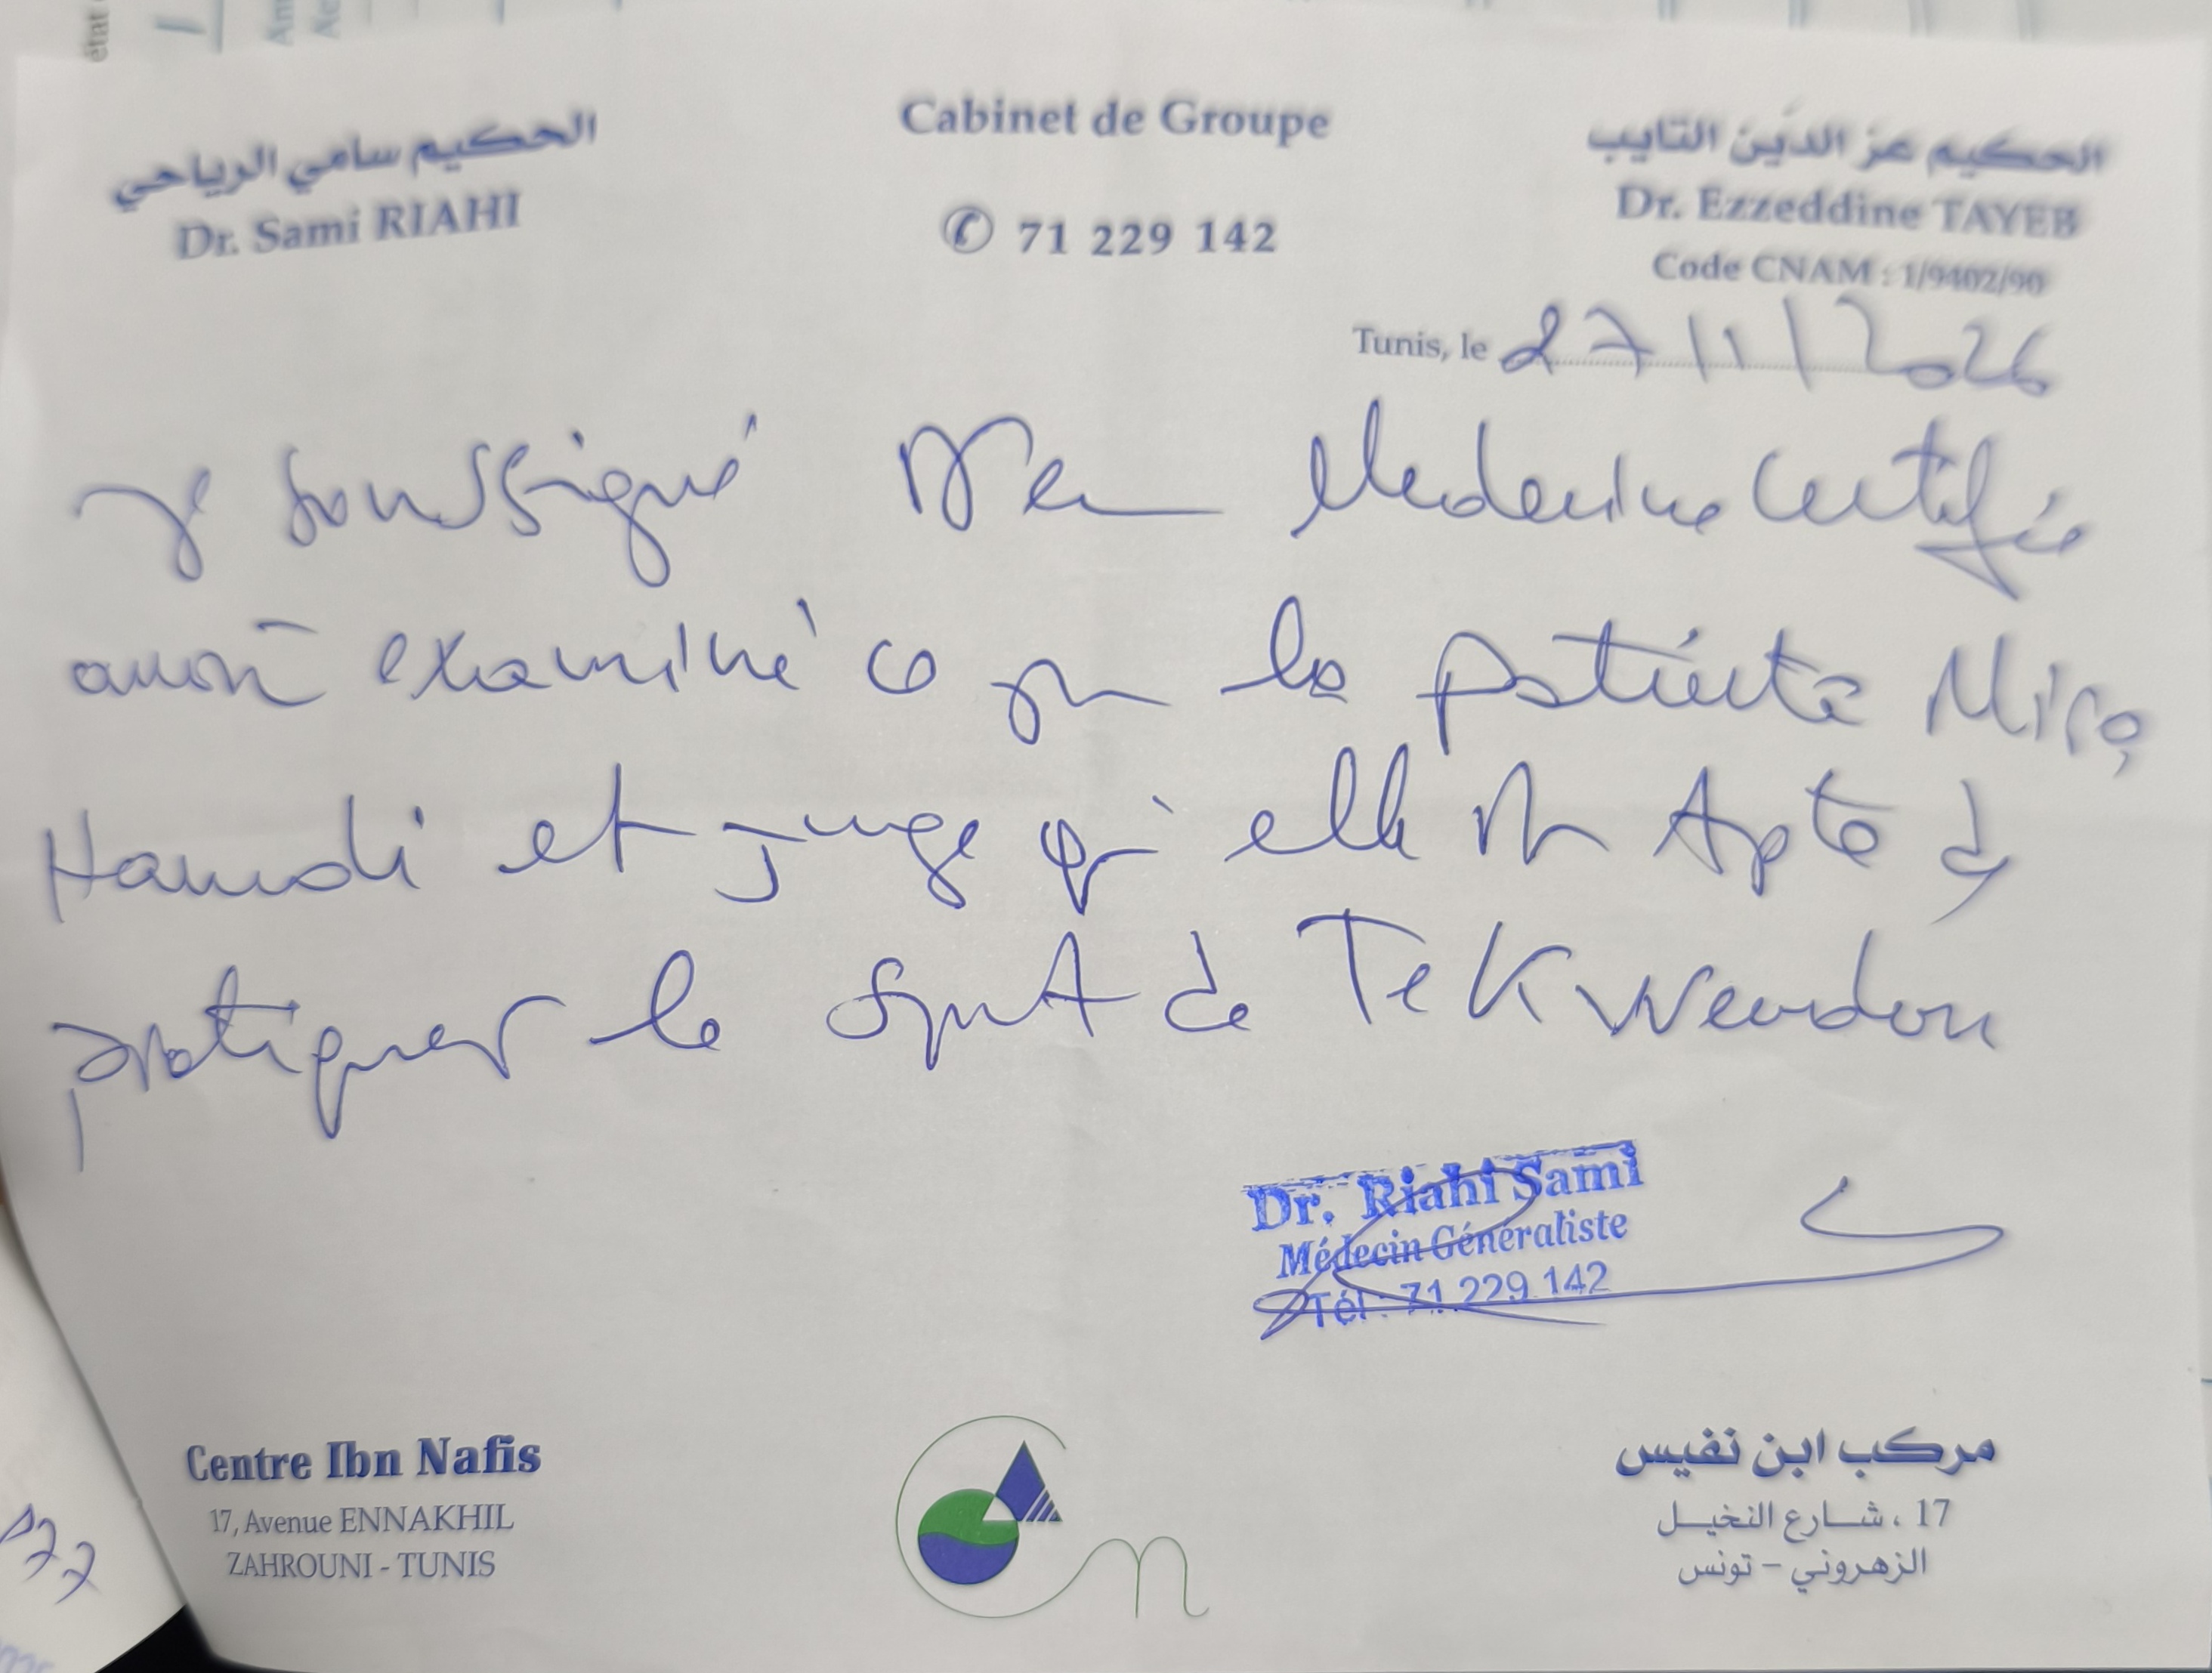 الحكيم سامي الرياحي
Dr. Sami RIAHI
Cabinet de Groupe
✆ 71 229 142
الحكيم عز الدّين التايب
Dr. Ezzeddine TAYEB
Code CNAM : 1/9402/90
Tunis, le 27/1/2026
Je soussigné Medecine Certifie
avoir examiné ce jour la patiente
Hamdi et juge qu'elle est Apte à
pratiquer le sport de TeKWendou
Dr. Riahi Sami
Médecin Généraliste
Tél : 71 229 142
Centre Ibn Nafis
17, Avenue ENNAKHIL
ZAHROUNI - TUNIS
مركب ابن نفيس
17 ، شارع النخيل
الزهروني - تونس
état